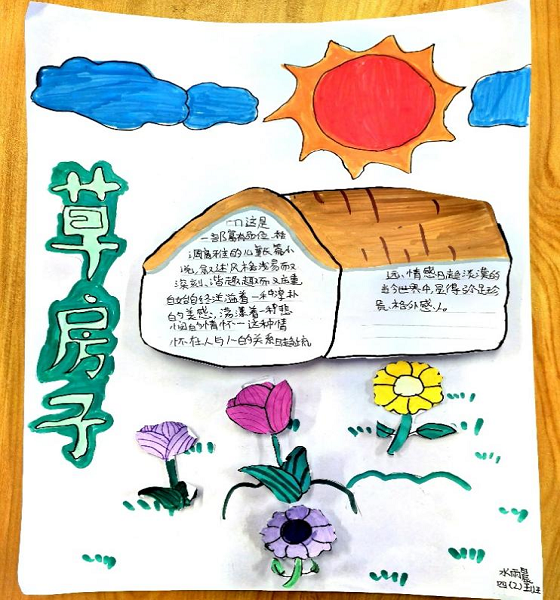 草房子
这是
一部富有品位、格
调高雅的儿童长篇小
说,叙述风格浅易而又
深刻、谐趣而又庄重
自始自终洋溢着一种淳朴
的美感,荡漾着一种悲
悯的情怀一这种情
怀在人与人的关系日趋疏
远、情感日趋淡漠的
当今世界中,显得弥足珍
贵、格外感人。
水雨晨
四(2)班